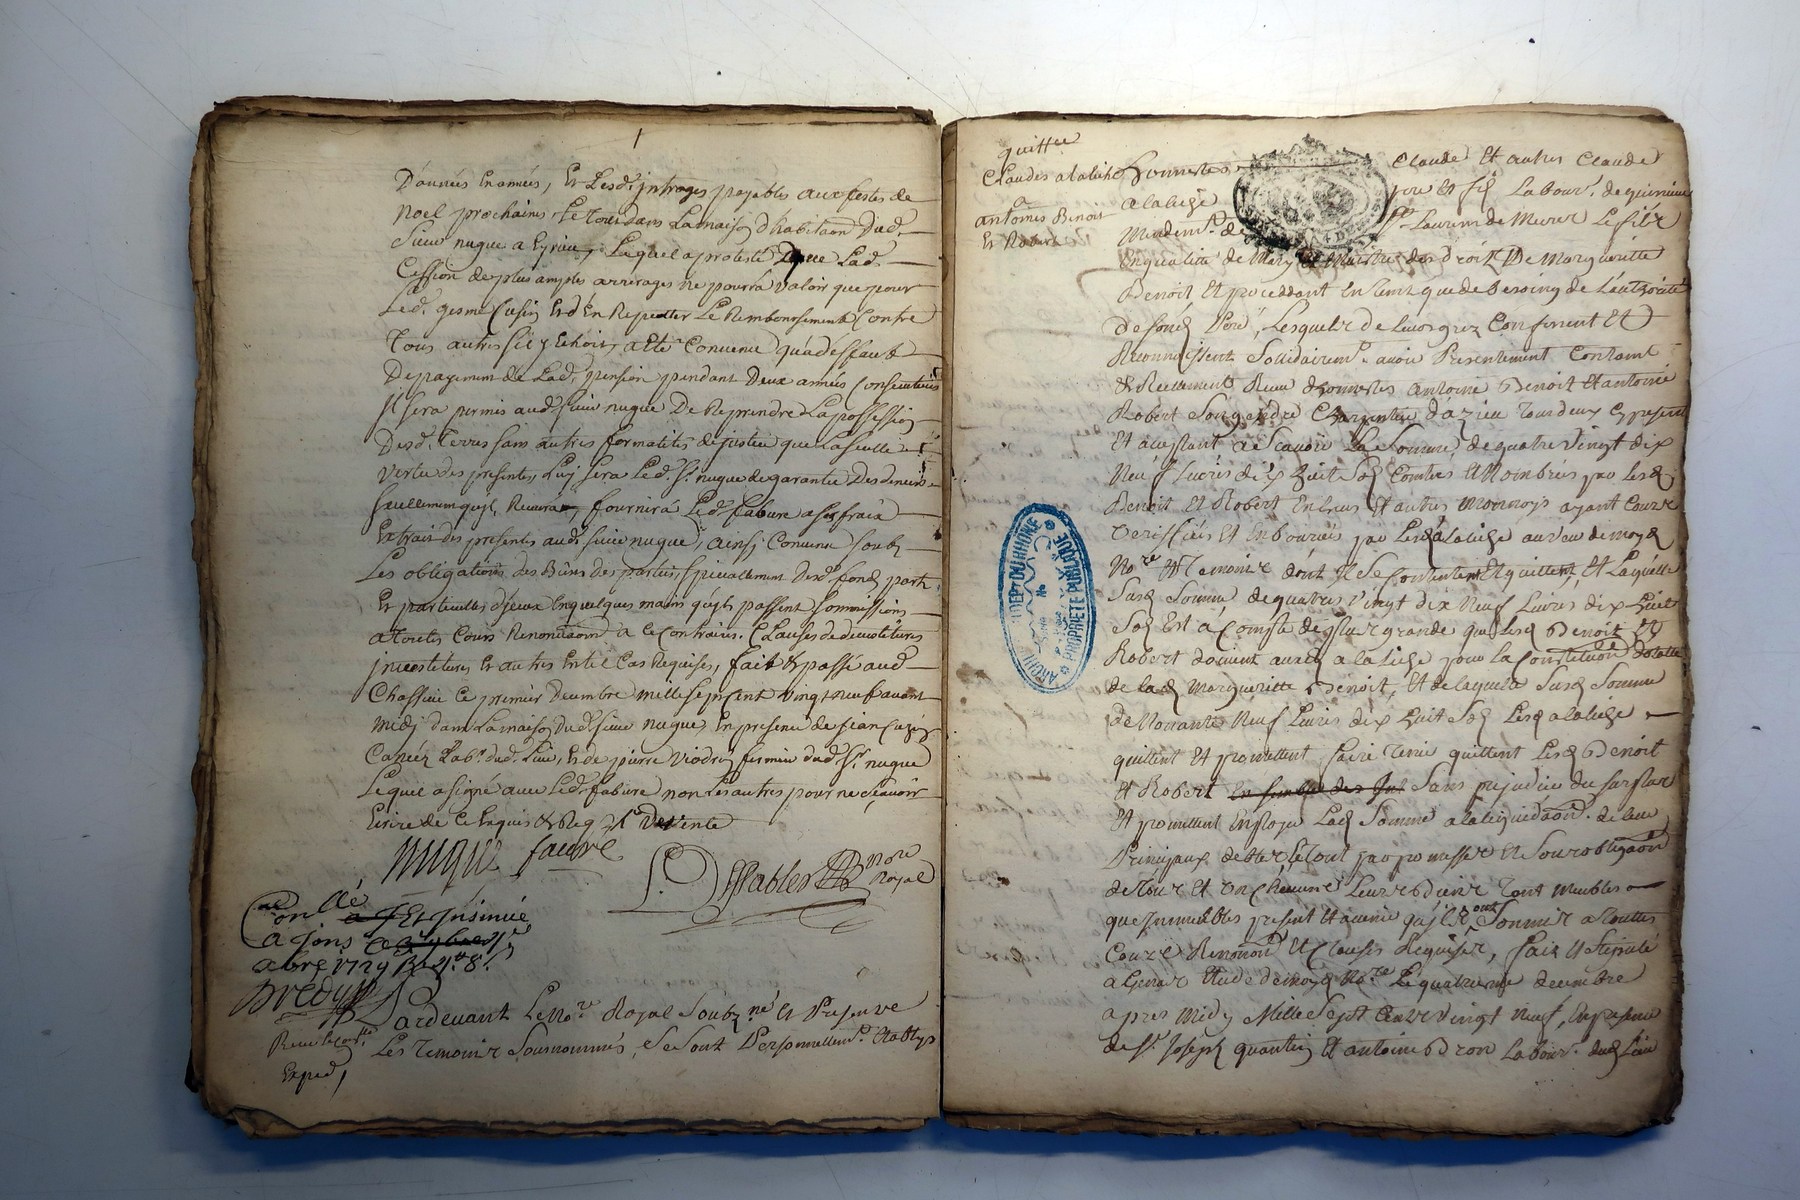 D'années en années, Et Lesd. intrages payables aux festes de
Noel prochaines Le Tout dans La maison d'habitaôn Dud.
Sieur nuque a Lequel a protesté que Lad.
Cession de plus amples arrerages ne pourra valoir que pour
Led. Et d'En Repetter Le Remboursement Contre
Tous autres sil y Echoit, a Eté Convenu qu'a deffaut
De payement de Lad. pension pendant Deux années Consecutives
Il sera permis aud. sieur nuque De Reprendre La possession
Desd. Terres sans autres formalités de justice que La seulle
vertu des presentes, Luy sera Led. Sr. nuque de garantie Des deniers
seullement qu'il Recevra, fournira Led. fabure a ses fraix
Extrait des presentes aud. sieur nuque, ainsi Convenu soubz
Les obligations des Biens des parties, specialement Desd. fondz
Et particulles d'iceux En quelques mains qu'ils passent sommissions
a Toutes Cours Renonciaôns a ce Contraires. Clauses de devestitures
investitures Et autres En tel Cas Requises, fait & passé aud.
Chassieu Ce premier Decembre mille sept cent vingt neuf avant
midi dans La maison Dud. sieur nuque, En presence de jean
Labr. dud. Lieu, Et de pierre fermier dud. Sr. nuque
Lequel a signé avec Led. fabure non Les autres pour ne sçavoir
Ecrire de Ce Enquis & Req.
nuque faure
nore Royal
Conllé Et Insinué
a
1729
Pardevant Le Nore. Royal Soubzné. Et Presence
Les Temoins Sousnommés, Se Sont Personnellemt. Etablys
Receu
Exped.
quittce
Claudes alaliche
a
antoines Benoit
Et Robert
Honnestes Claude Et autres Claude
alaliege pere Et fils Labours. de
de St. Laurens de Mure Le fils
En qualité de Mary Et Maistre des droits De Margueritte
Benoit Et proceddant En tant que de Besoing de L'authorité
De sond. Pere, Lesquels de Leurs grez Confessent Et
Reconnoissent Sollidairemt. avoir Presentement Contant
& Reellement Receu d'honnestes antoine Benoit Et antoine
Robert Son gendre Charpentier d'azieu Tous deux cy present
Et acceptant a Scavoir La Somme, de quatre vingt dix
Neuf Livres dix huit Sols Comtés Et Nombrés par lesd.
Benoit Et Robert En Ecus Et autres Monnoys ayant Cours
Verifiés Et Enboursés par Lesd. alaliege au veu de moyd.
Nore. Et Temoins dont Ils Se Contentent Et quittent, Et Laquelle
Susd. Somme de quatres vingt dix Neuf Livres dix huit
Sols Est a Compte de plus grande que lesd. Benoit Et
Robert doivent auxd. alaliege pour la Constitution dotalle
de lad. Margueritte Benoit, Et de laquelle Susd. Somme
de Nonante Neuf Livres dix huit Sols Lesd. alaliege
quittent Et promettent faire Tenir quittent Lesd. Benoit
Et Robert Sans prejudice du surplus
Et promettent Enployer Lad. Somme a la liquidaôn. de leur
Principaux debtes, Le Tout par promesse Et Sous obligaôn
de Tous Et un Chacuns Leurs Biens Tant Meubles
que Immeubles present Et avenir qu'Ils ont Soumis a Touttes
Cours Renonçiôn Et Clauses Requises, fait Et Stipulé
a Genas Etude de moyd. Nore. Le quatrieme decembre
apres Midy Mille Sept Cents vingt Neuf, En presence
de Sr. Joseph quantin Et antoine Labour. dud. Lieu
ARCHIVES DEPT DU RHÔNE
PROPRIETE PUBLIQUE